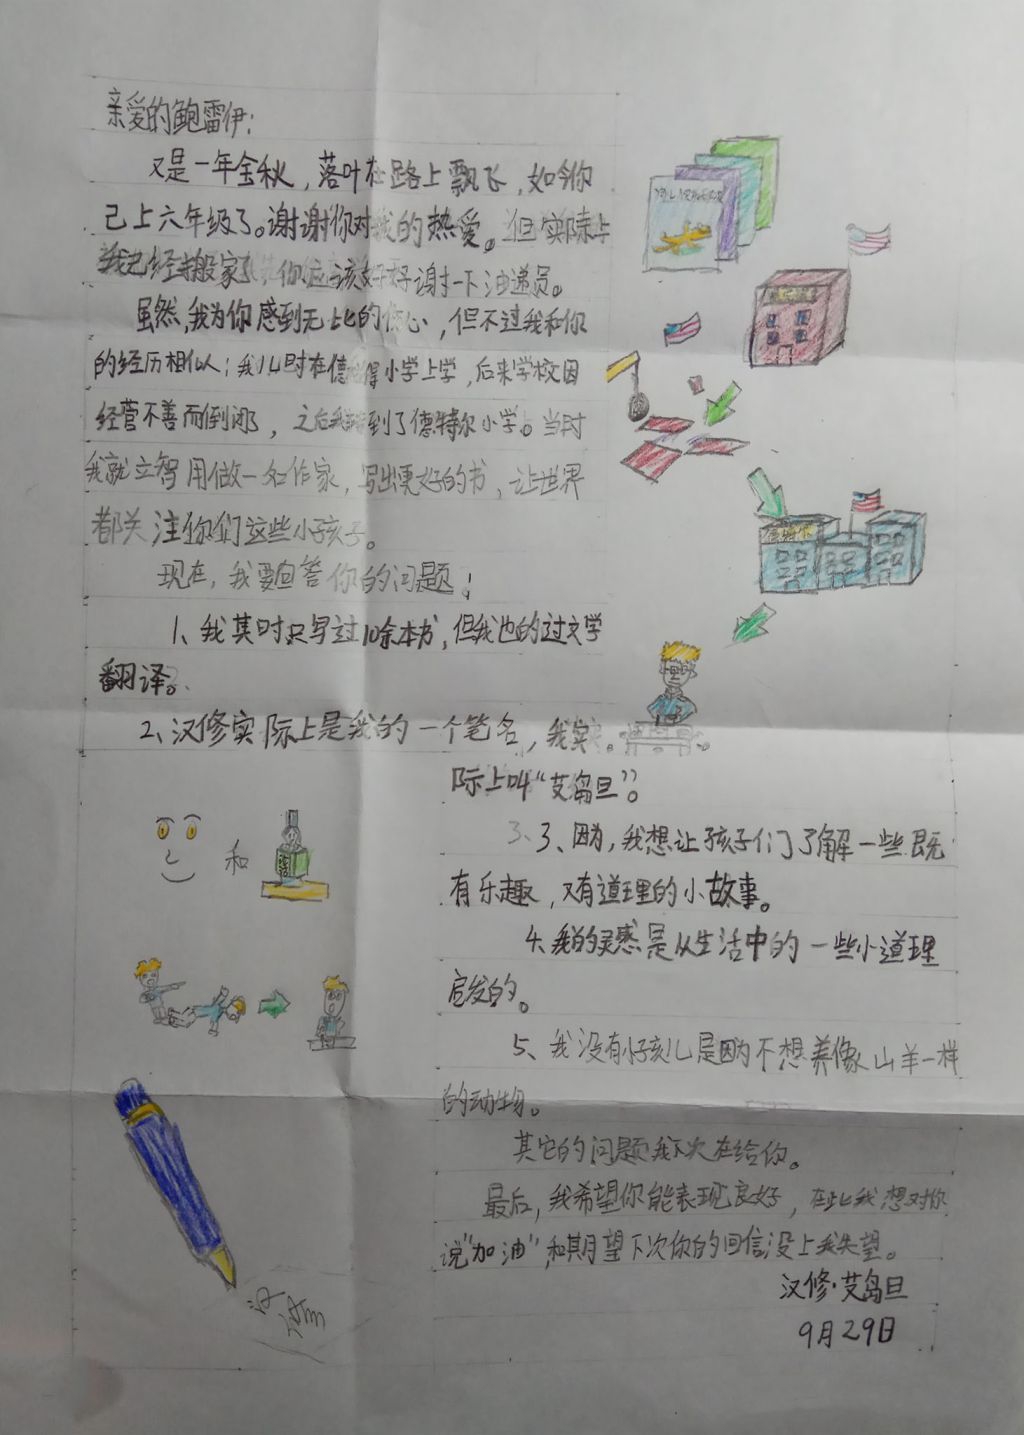 亲爱的鲍雷伊：
又是一年金秋，落叶在路上飘飞，如今你
已上六年级了。谢谢你对我的热爱。但实际上
我已经搬家了，你应该好好谢一下油递员。
虽然，我为你感到无比的心，但不过我和你
的经历相似；我儿时在德得小学上学，后来学校因
经营不善而倒闭了，之后我到了德特尔小学。当时
我就立智用做一名作家，写出更好的书，让世界
都关注你们这些小孩子。
现在，我要回答你的问题！
1、我其时只写过10余本书，但我也的过文学
翻译。
2、汉修实际上是我的一个笔名，我实
际上叫“艾岛旦”。
3、因为，我想让孩子们了解一些既
有乐趣，又有道理的小故事。
4、我的灵感是从生活中的一些小道理
启发的。
5、我没有小孩儿是因为不想养像山羊一样
的动物。
其它的问题我下次在给你。
最后，我希望你能表现良好，在此我想对你
说“加油”，和期望下次你的回信没上我失望。
汉修·艾岛旦
9月29日
和
汉修